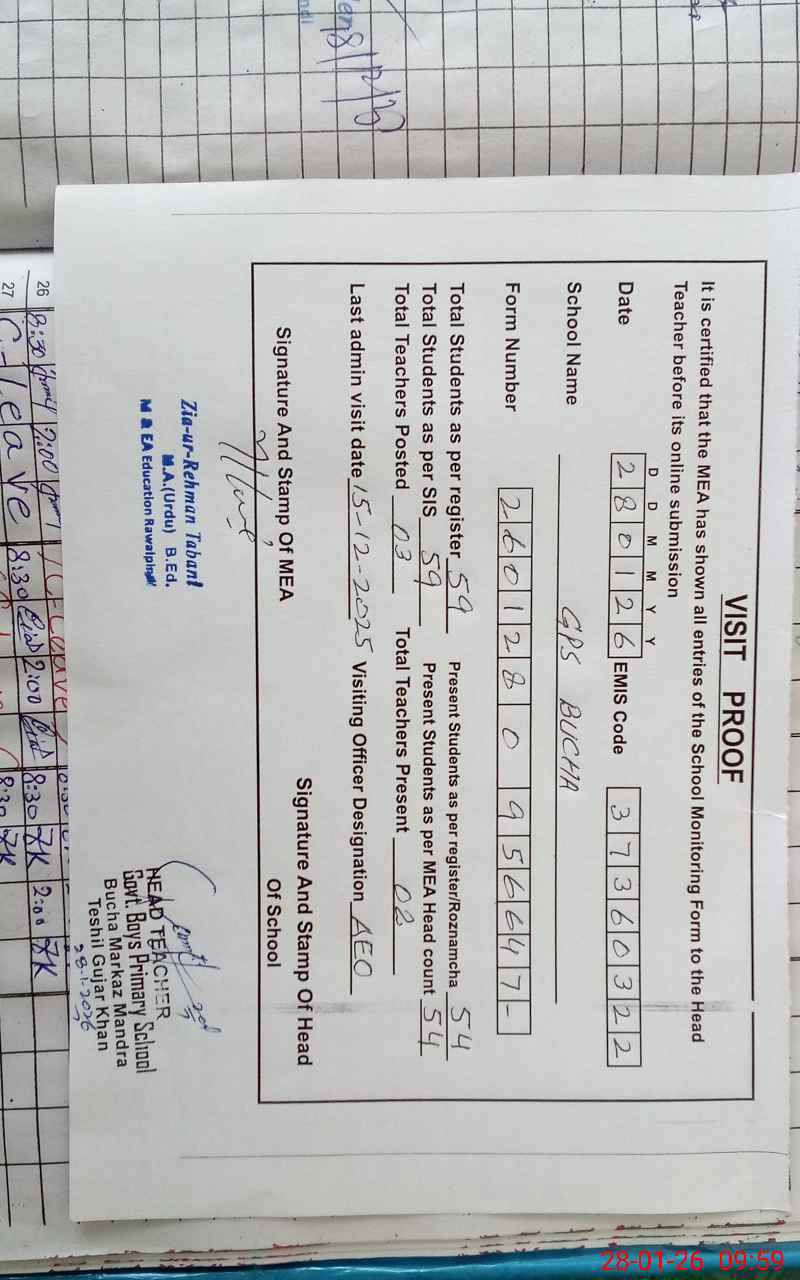 VISIT PROOF
It is certified that the MEA has shown all entries of the School Monitoring Form to the Head
Teacher before its online submission
D D M M Y Y
Date 2 8 0 1 2 6 EMIS Code 3 7 3 6 0 3 2 2
School Name GPS BUCHA
Form Number 2 6 0 1 2 8 0 9 5 6 6 4 7 -
Total Students as per register 59 Present Students as per register/Roznamcha 54
Total Students as per SIS 59 Present Students as per MEA Head count 54
Total Teachers Posted 03 Total Teachers Present 02
Last admin visit date 15-12-2025 Visiting Officer Designation AEO
Signature And Stamp Of MEA
Signature And Stamp Of Head
Of School
Zia-ur-Rehman Tabani
M.A.(Urdu) B.Ed.
M & EA Education Rawalpindi
HEAD TEACHER
Govt. Boys Primary School
Bucha Markaz Mandra
Teshil Gujar Khan
28.1.2026
26 8:30 2:00 8:30 2:00 8:30 ZK 2:00 ZK
27 C-Leave 8:30 8:30 ZK
28-01-26 09:59